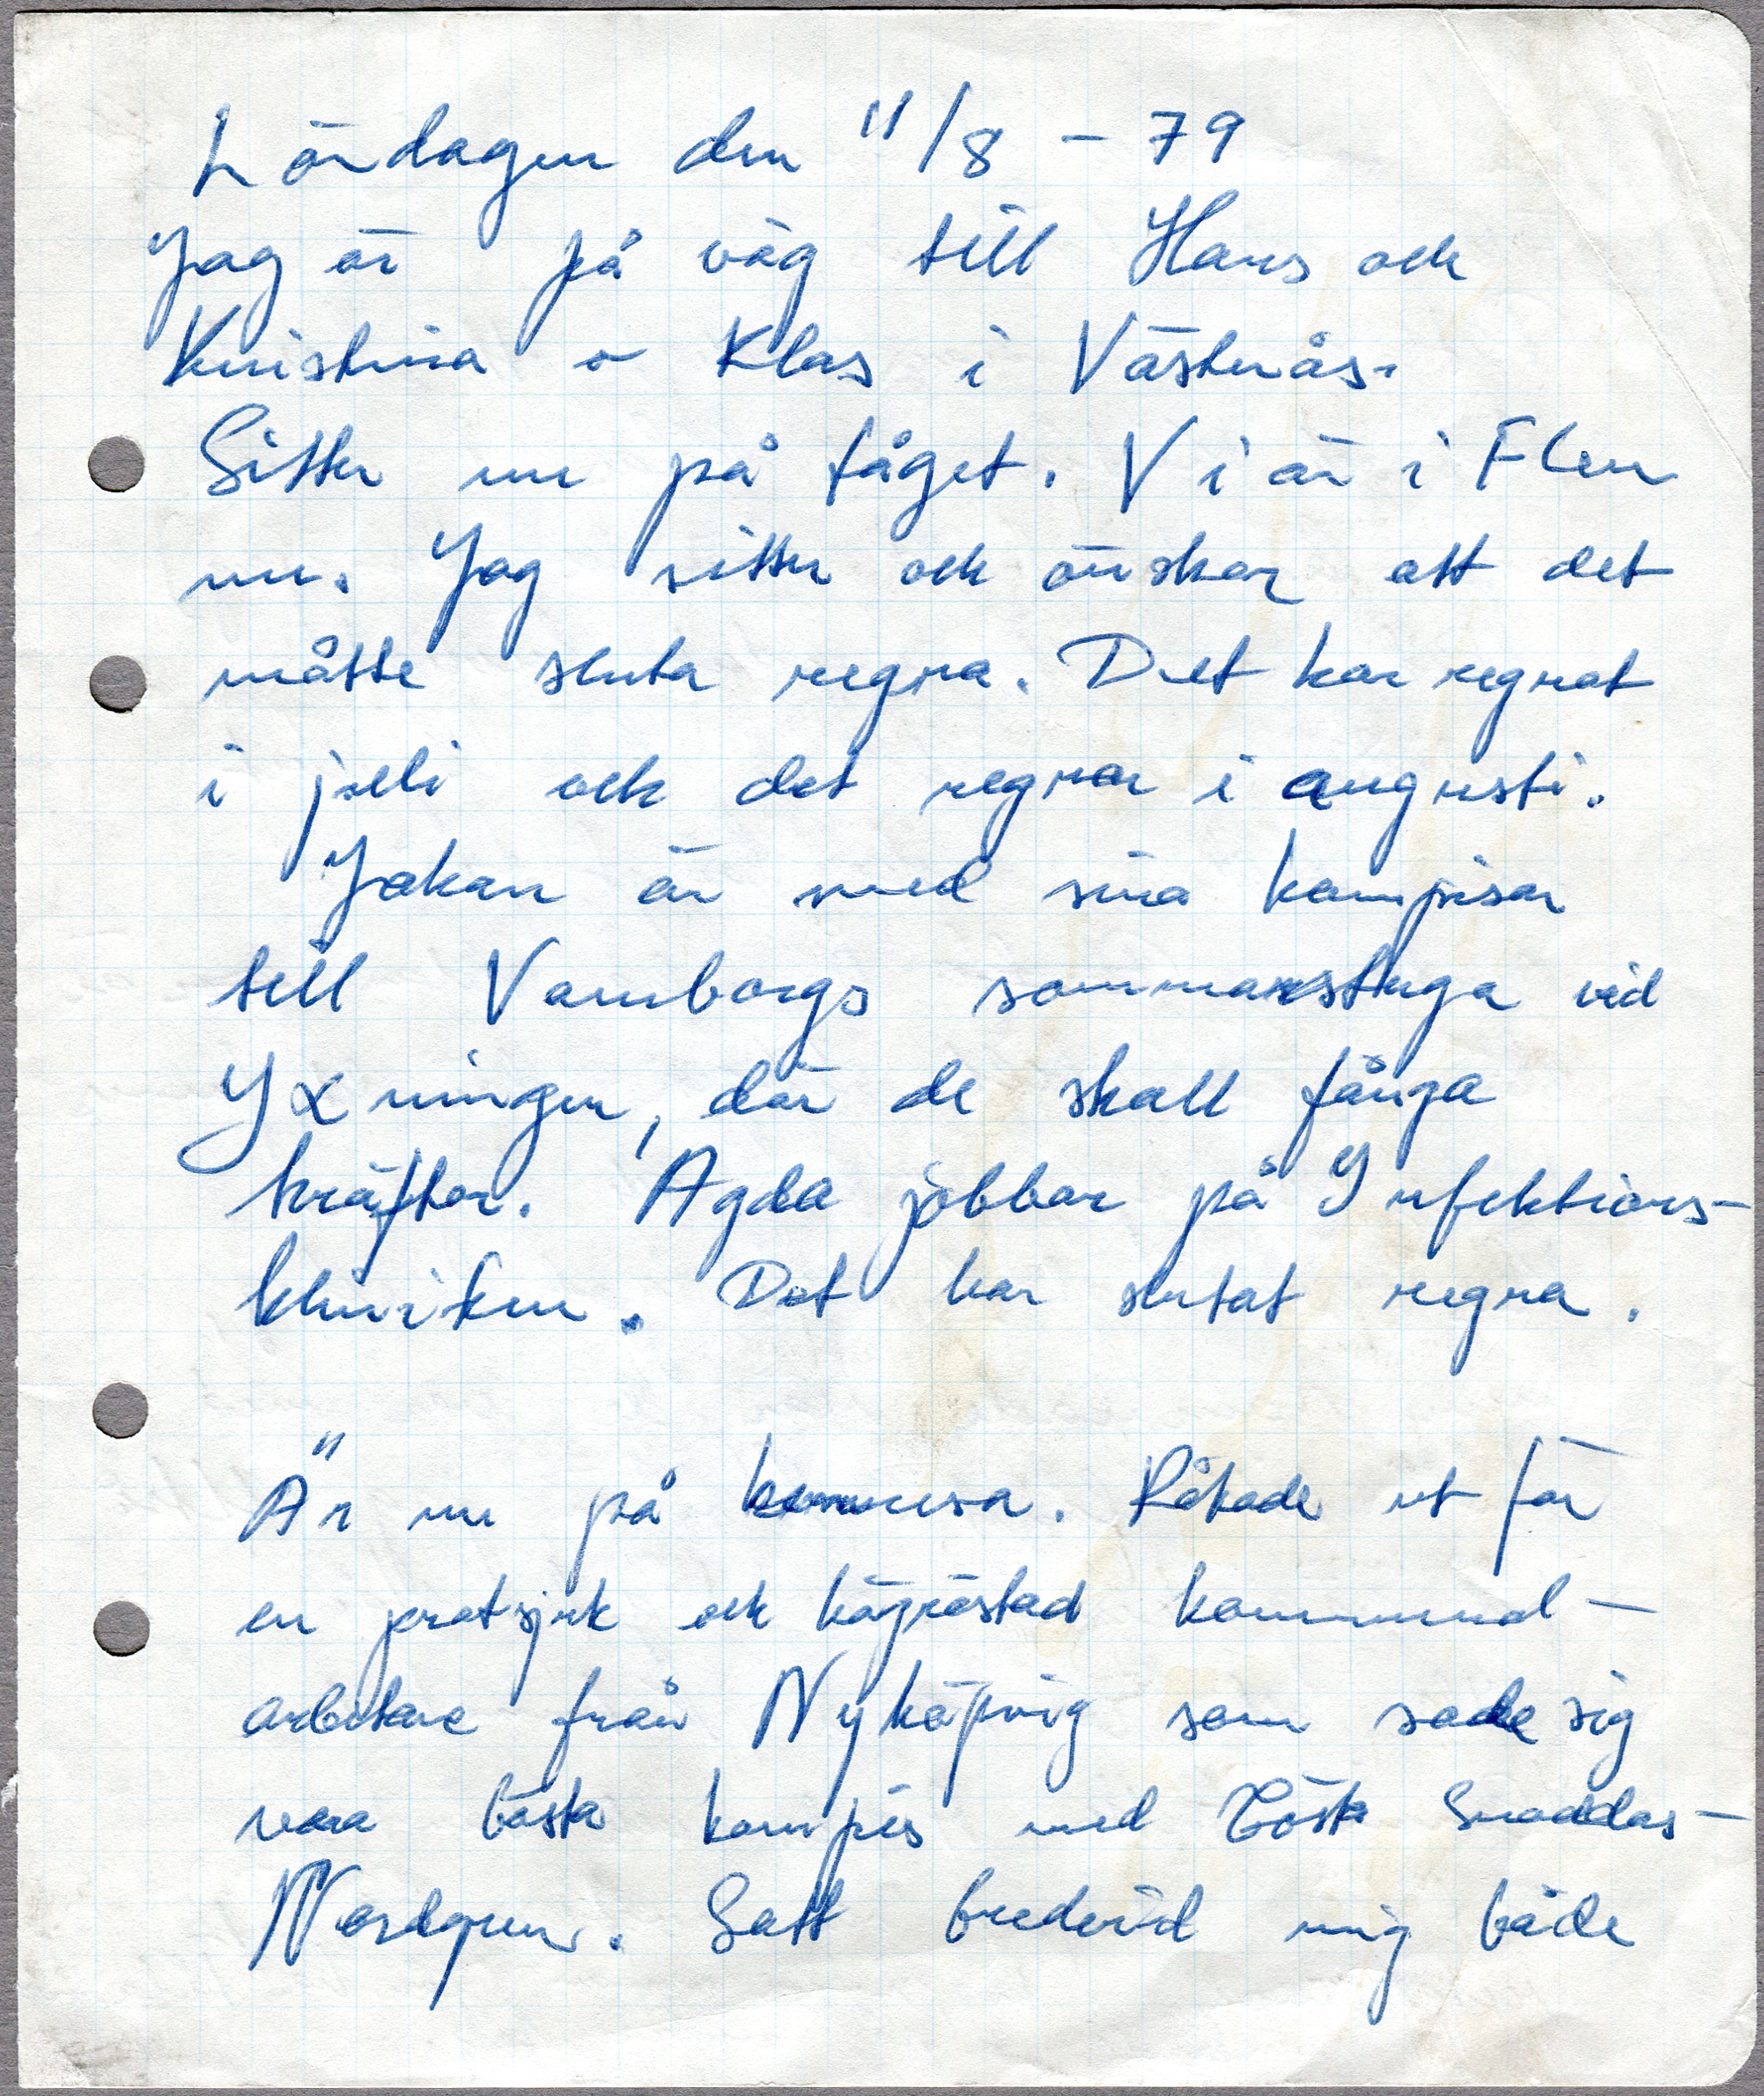 Lördagen den 11/8 - 79
Jag är på väg till Hans och
Kristina o Klas i Västerås.
Sitter nu på tåget. Vi är i Flen
nu. Jag sitter och önskar att det
måtte sluta regna. Det har regnat
i juli och det regnar i augusti.
Håkan är med sina kompisar
till Vamborgs sommarstuga vid
Yxningen, där de skall fånga
kräftor. Agda jobbar på Infektions-
kliniken. Det har slutat regna.
Är nu på hemresa. Råkade ut för
en pratsjuk och högröstad kommunal-
arbetare från Nyköping som sade sig
vara bästa kompis med Gösta Snoddas-
Nordgren. Satt bredvid mig både